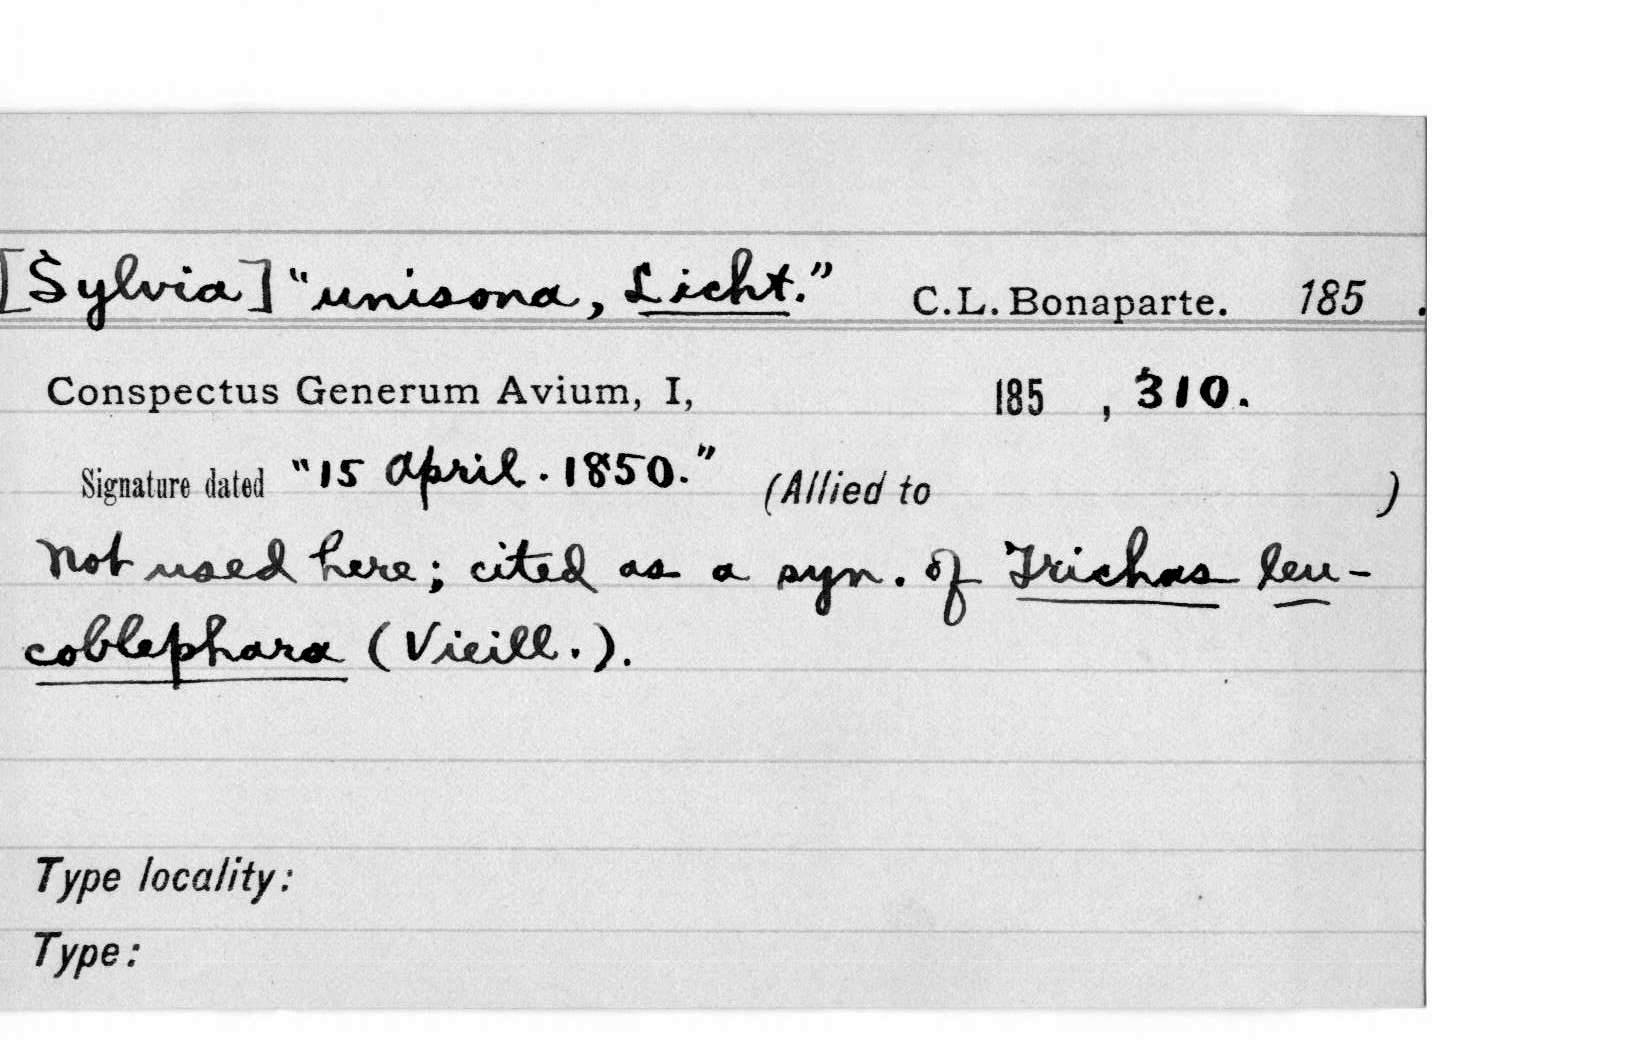 [Sylvia] "unisona, Licht." C.L. Bonaparte. 185 .
Conspectus Generum Avium, I, 185 , 310.
Signature dated "15 April. 1850." (Allied to )
Not used here; cited as a syn. of Trichas leu-
coblephara (Vieill.).
Type locality:
Type: